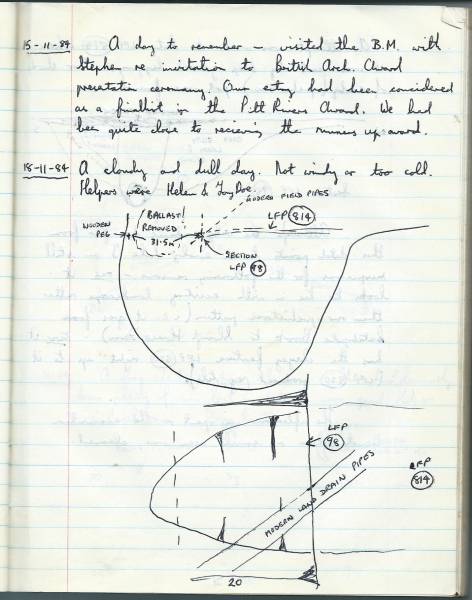 15-11-84 A day to remember – visited the B.M. with
Stephen re invitation to British Arch. Award
presetation ceromony. Our entry had been considered
as a finalist in the Pitt Rivers Award. We had
been quite close to recieving the runners up award.
18-11-84 A cloudy and dull day. Not windy or too cold.
Helpers were Helen & Tony Doe.
MODERN FIELD PIPES
WOODEN PEG
BALLAST REMOVED
31.5m
LFP 814
SECTION LFP 98
LFP 98
LFP 814
MODERN LAND DRAIN PIPES
20